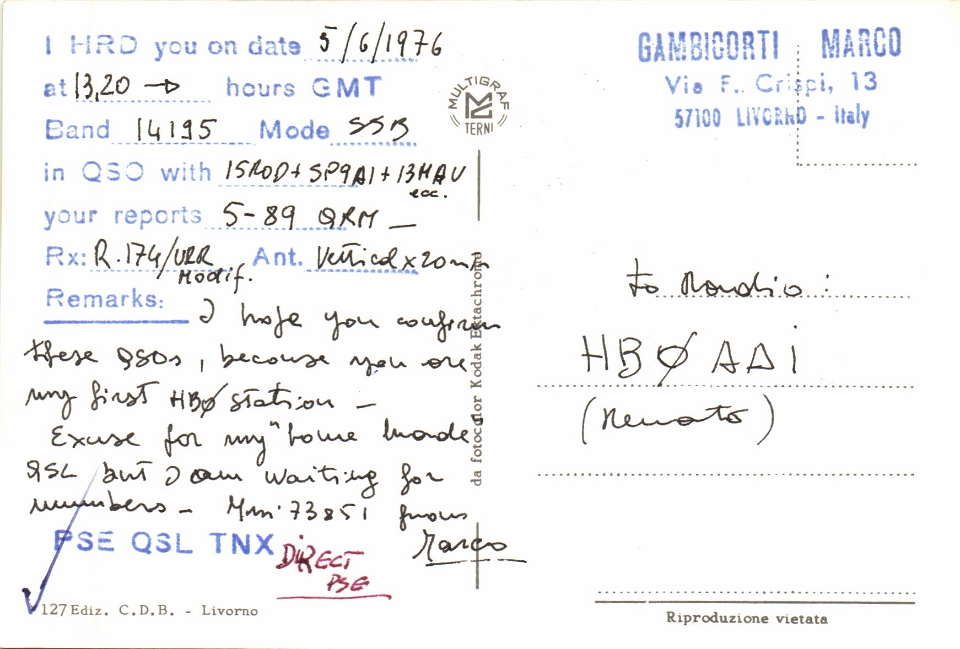 I HRD you on date 5/6/1976
at 13,20 → hours GMT
Band 14195 Mode SSB
in QSO with I5ROD + SP9AI + I3MAU
ecc.
your reports 5-89 QRM —
Rx: R.174/URR Ant. Vertical x 20 m
Modif.
Remarks: I hope you confirm
these QSOs, because you are
my first HBØ station —
Excuse for my "home made
QSL but I am waiting for
numbers — 73 & 51 from
Marco
PSE QSL TNX
DIRECT
PSE
127 Ediz. C.D.B. - Livorno
MULTIGRAF
TERNI
da fotocolor Kodak Ektachrome
GAMBICORTI MARCO
Via F. Crispi, 13
57100 LIVORNO - Italy
to Radio :
HBØ AAI
(Renato)
Riproduzione vietata